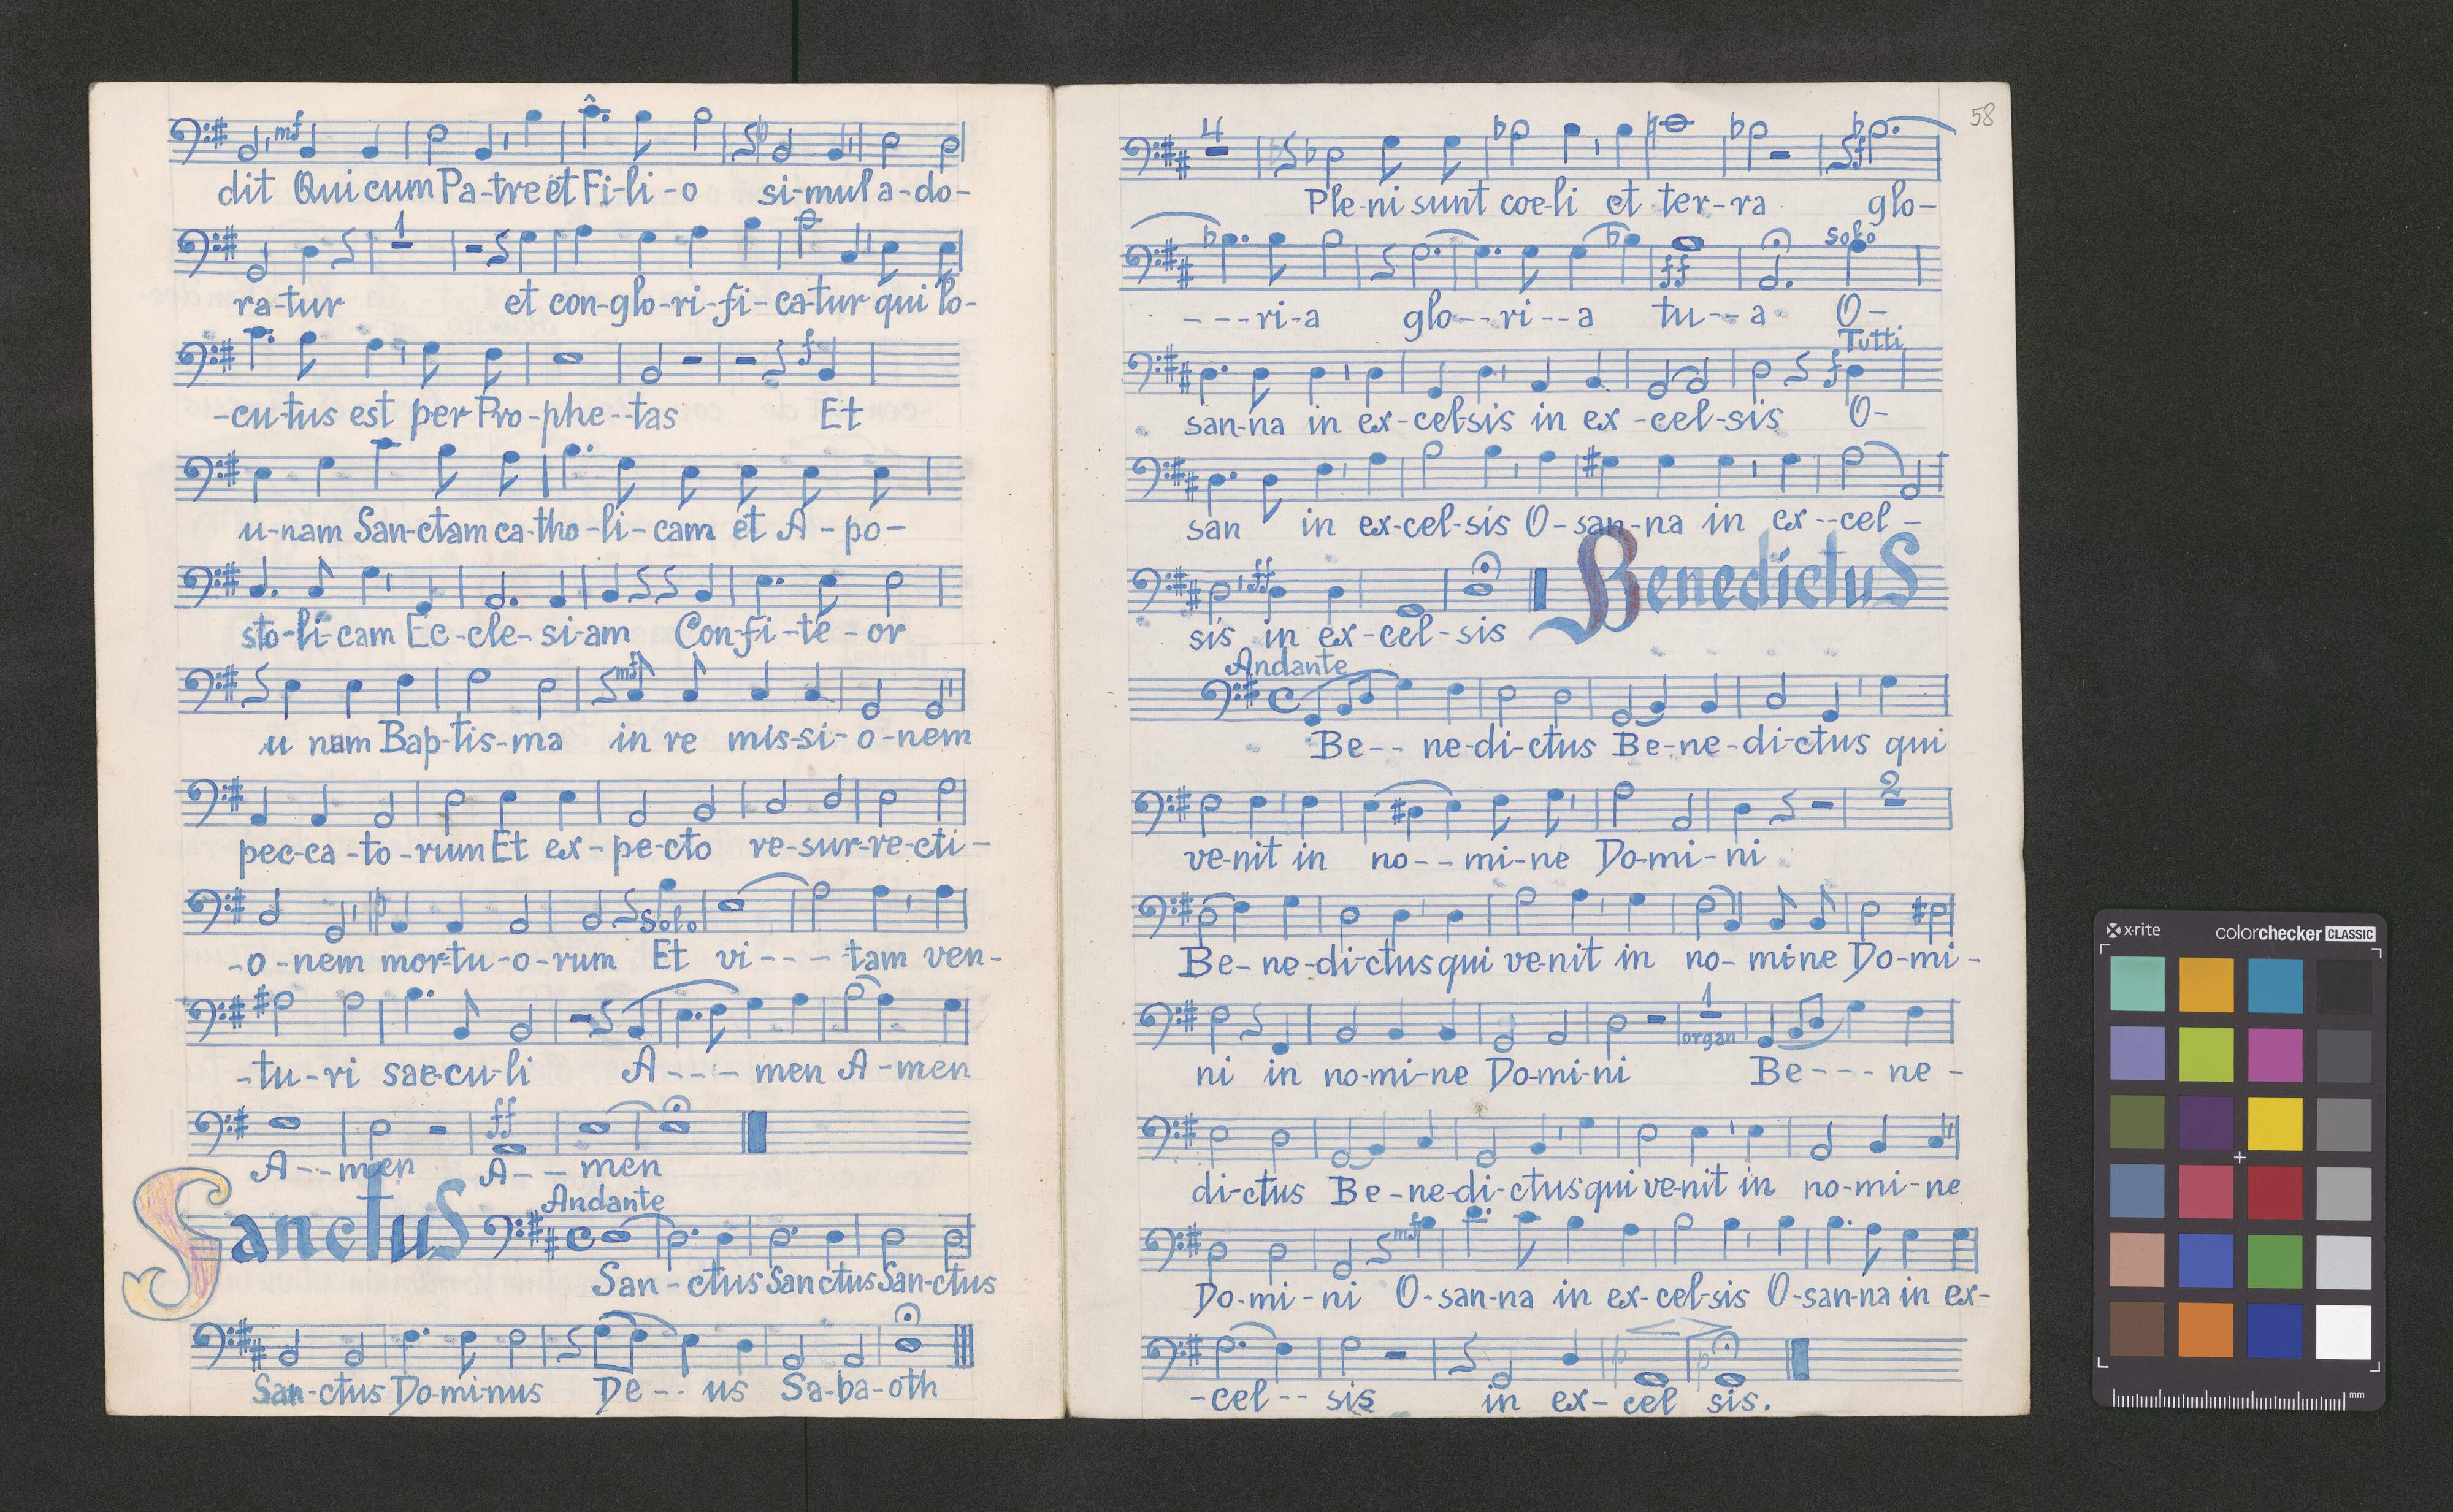 mf
dit Qui cum Pa-tre et Fi-li-o si-mul a-do-
1
ra-tur et con-glo-ri-fi-ca-tur qui lo-
f
-cu-tus est per Pro-phe--tas Et
u-nam San-ctam ca-tho-li-cam et A-po-
sto-li-cam Ec-cle-si-am Con-fi-te-or
mf
u nam Bap-tis-ma in re mis-si-o-nem
pec-ca-to-rum Et ex-pe-cto re-sur-re-cti-
p Solo
-o-nem mor-tu-o-rum Et vi----tam ven-
-tu-ri sae-cu-li A----men A-men
ff
A---men A---men
Sanctus Andante
San-ctus San ctus San-ctus
San-ctus Do-mi-nus De---us Sa-ba-oth
58
4
f
Ple-ni sunt coe-li et ter-ra glo-
solo
ff
----ri-a glo---ri--a tu--a O-
Tutti
f
san-na in ex-cel-sis in ex-cel-sis O-
san in ex-cel-sis O-san-na in ex--cel-
ff
Benedictus
sis in ex-cel-sis
Andante
Be-- ne-di-ctus Be-ne-di-ctus qui
2
ve-nit in no---mi-ne Do-mi-ni
Be-ne-di-ctus qui ve-nit in no-mi-ne Do-mi-
1
organ
ni in no-mi-ne Do-mi-ni Be----ne-
di-ctus Be-ne-di-ctus qui ve-nit in no-mi-ne
mf
Do-mi-ni O-san-na in ex-cel-sis O-san-na in ex-
p p
-cel--sis in ex-cel sis.
x-rite colorchecker CLASSIC
mm